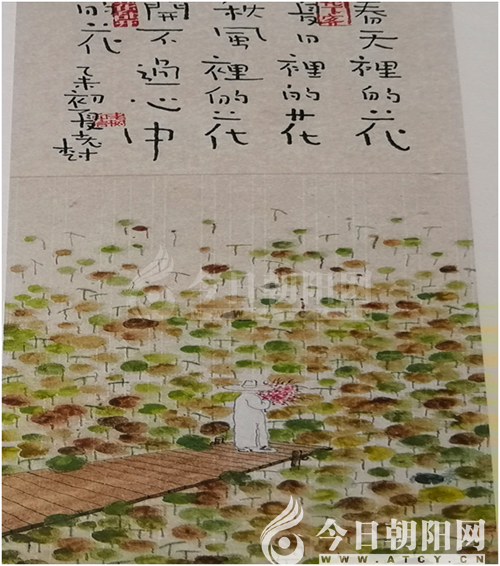 春天裡的花
夏日裡的花
秋風裡的花
開不過心中
的花
乙未初夏老樹
今日朝阳网
今日朝阳网
WWW.ATCY.CN